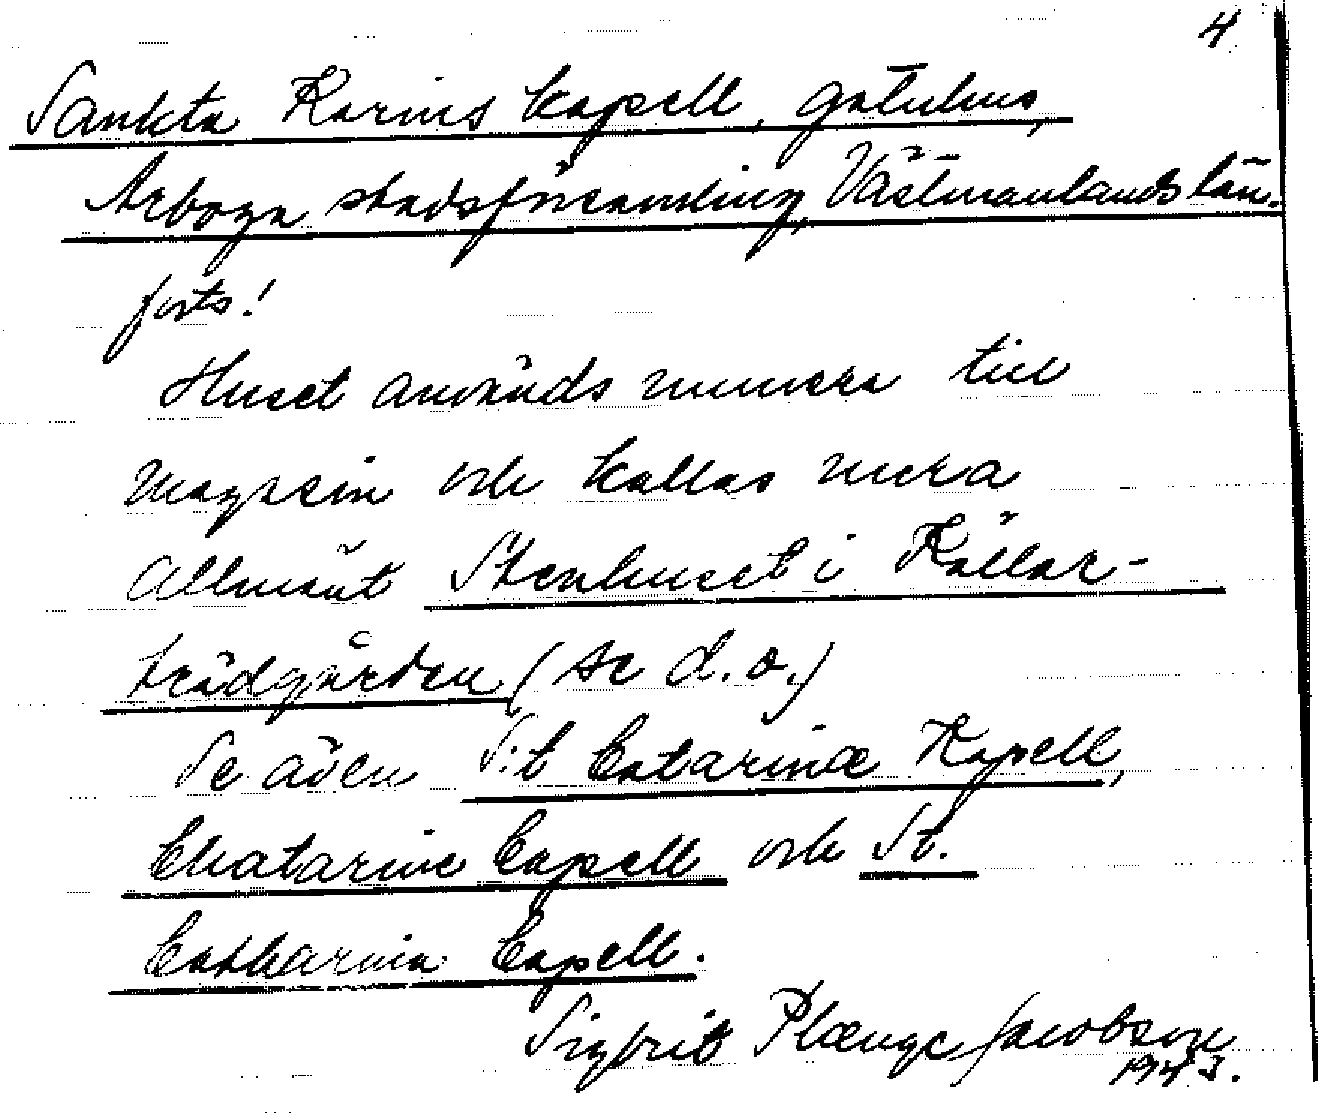 4
Sankta Karins kapell, gatuhus,
Arboga stadsförsamling, Västmanlands län.
forts!
Huset används numera till
magasin och kallas mera
allmänt Stenhuset i Källar-
trädgården (se d.o.)
Se även S:t Catarinæ Kapell,
Chatarine Capell och St.
Catharina Capell.
Sigbrit Plænge Jacobson
1943.